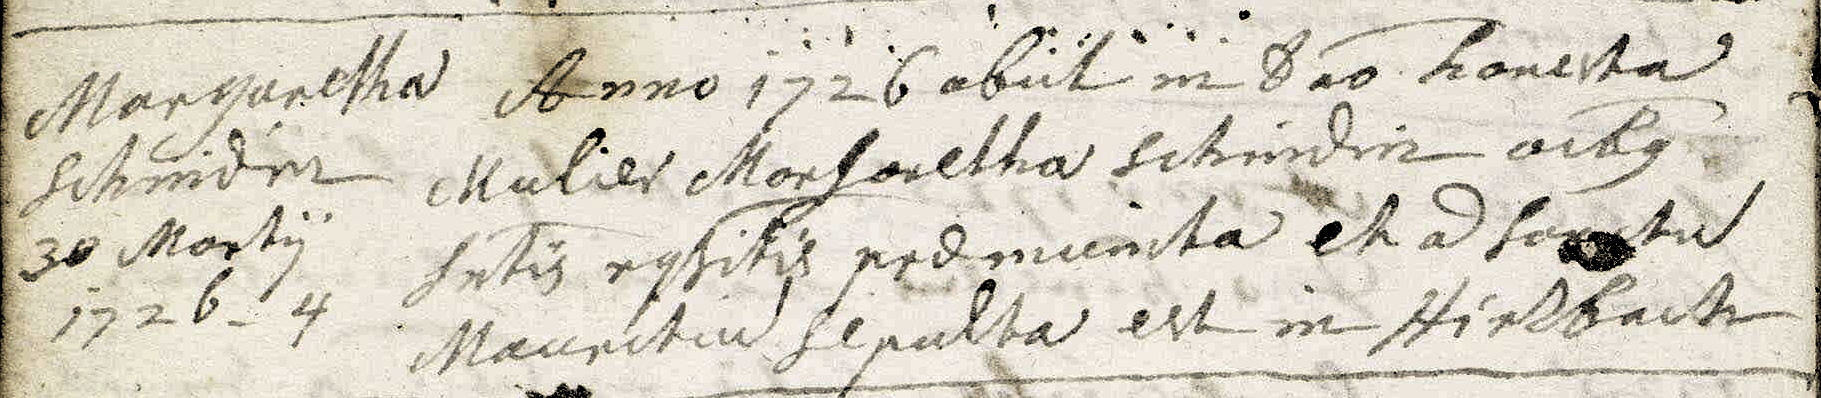 Margaretha
Schnidrin
30 Martij
1726 - 4
Anno 1726 obiit in Dno honesta
Mulier Margaretha Schnidrin oibg
Sctis rqsitis prdmunita et ad Sanctu
Mauritiu Sepulta est in Hirdbach